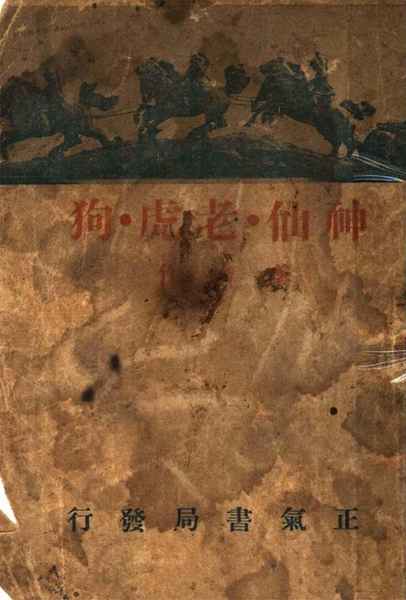 神仙·老虎·狗
正氣書局發行